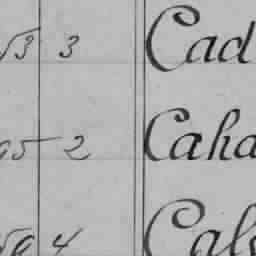 3 Cad
95 2 Caha
4 Cal